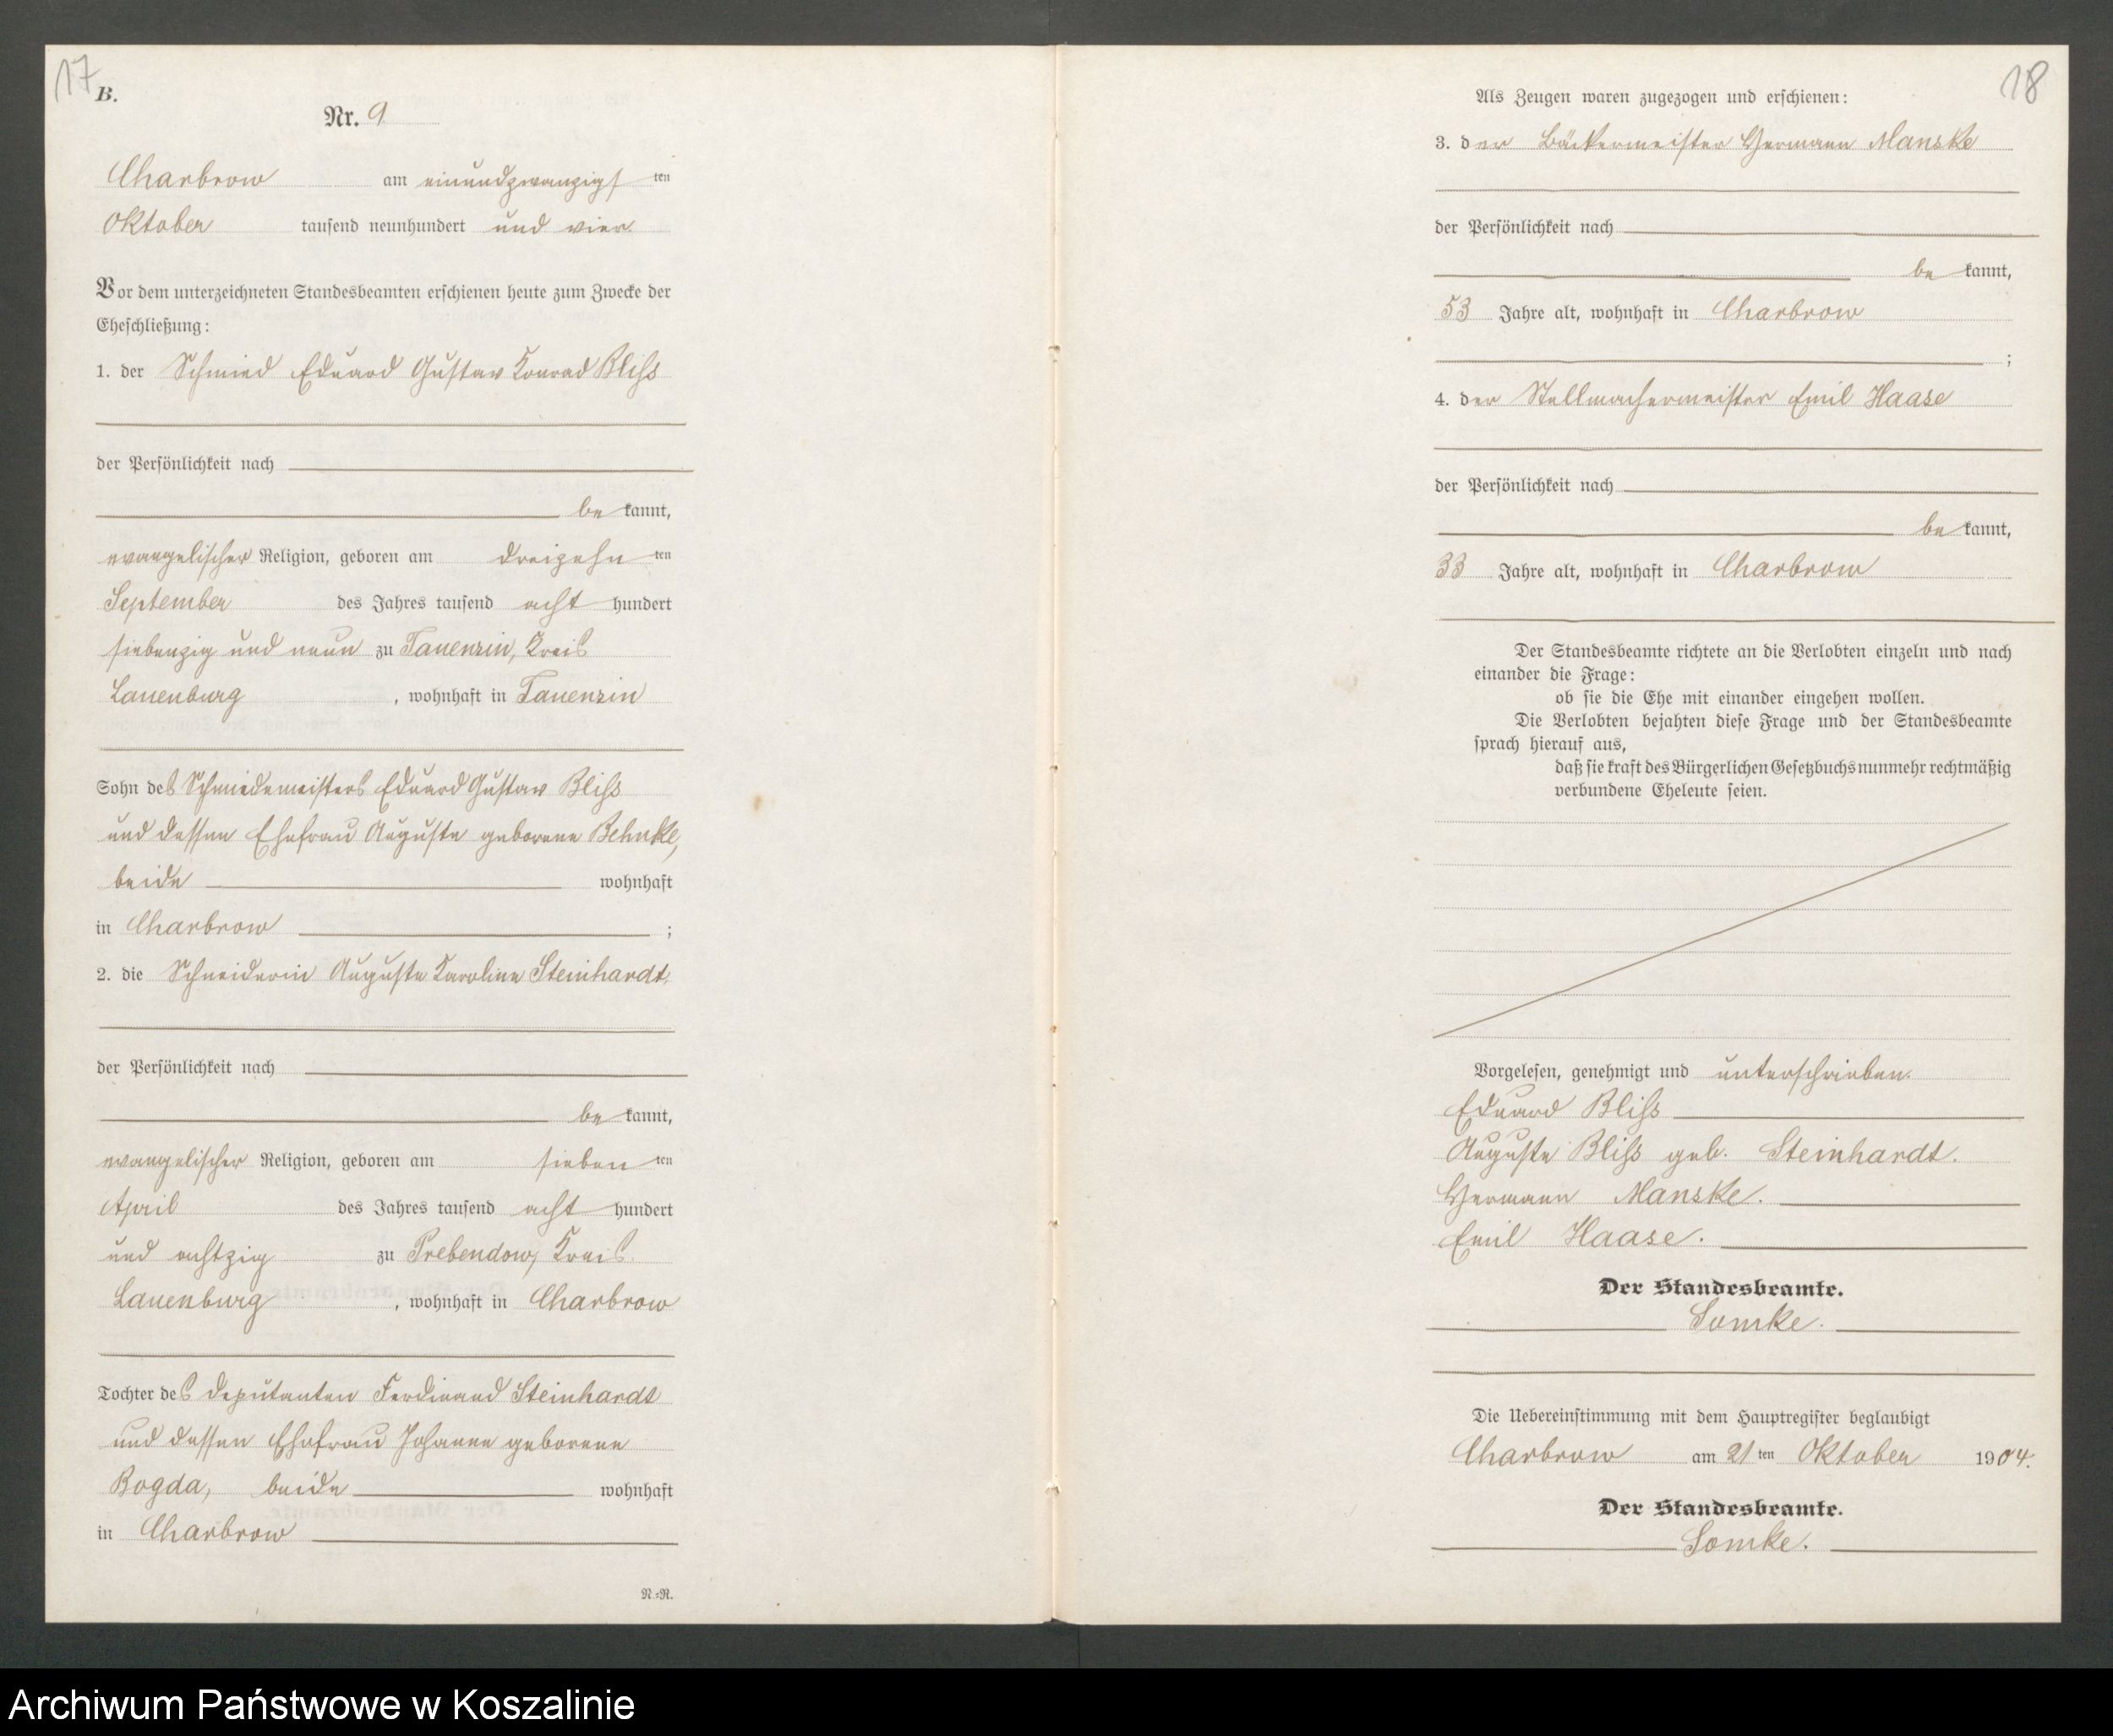 17
B.
Nr. 9
Charbrow am einundzwanzigsten
Oktober tausend neunhundert und vier.
Vor dem unterzeichneten Standesbeamten erschienen heute zum Zwecke der
Eheschließung:
1. der Schmied Eduard Gustav Konrad Bliß
der Persönlichkeit nach
bekannt,
evangelischer Religion, geboren am dreizehnten
September des Jahres tausend achthundert
siebenzig und neun zu Tauenzin, Kreis
Lauenburg, wohnhaft in Tauenzin
Sohn des Schmiedemeisters Eduard Gustav Bliß
und dessen Ehefrau Auguste geborene Behnke,
beide wohnhaft
in Charbrow ;
2. die Schneiderin Auguste Karoline Steinhardt
der Persönlichkeit nach
bekannt,
evangelischer Religion, geboren am siebenten
April des Jahres tausend achthundert
und achtzig zu Prebendow, Kreis
Lauenburg, wohnhaft in Charbrow
Tochter des Deputanten Ferdinand Steinhardt
und dessen Ehefrau Johanne geborene
Bogda, beide wohnhaft
in Charbrow
N.=R.
18
Als Zeugen waren zugezogen und erschienen:
3. der Bäckermeister Hermann Manske
der Persönlichkeit nach
bekannt,
53 Jahre alt, wohnhaft in Charbrow
;
4. der Stellmachermeister Emil Haase
der Persönlichkeit nach
bekannt,
33 Jahre alt, wohnhaft in Charbrow
Der Standesbeamte richtete an die Verlobten einzeln und nach
einander die Frage:
ob sie die Ehe mit einander eingehen wollen.
Die Verlobten bejahten diese Frage und der Standesbeamte
sprach hierauf aus,
daß sie kraft des Bürgerlichen Gesetzbuchs nunmehr rechtmäßig
verbundene Eheleute seien.
Vorgelesen, genehmigt und unterschrieben.
Eduard Bliß
Auguste Bliß geb. Steinhardt.
Hermann Manske.
Emil Haase.
Der Standesbeamte.
Die Uebereinstimmung mit dem Hauptregister beglaubigt
Charbrow am 21ten Oktober 1904.
Der Standesbeamte.
Archiwum Państwowe w Koszalinie